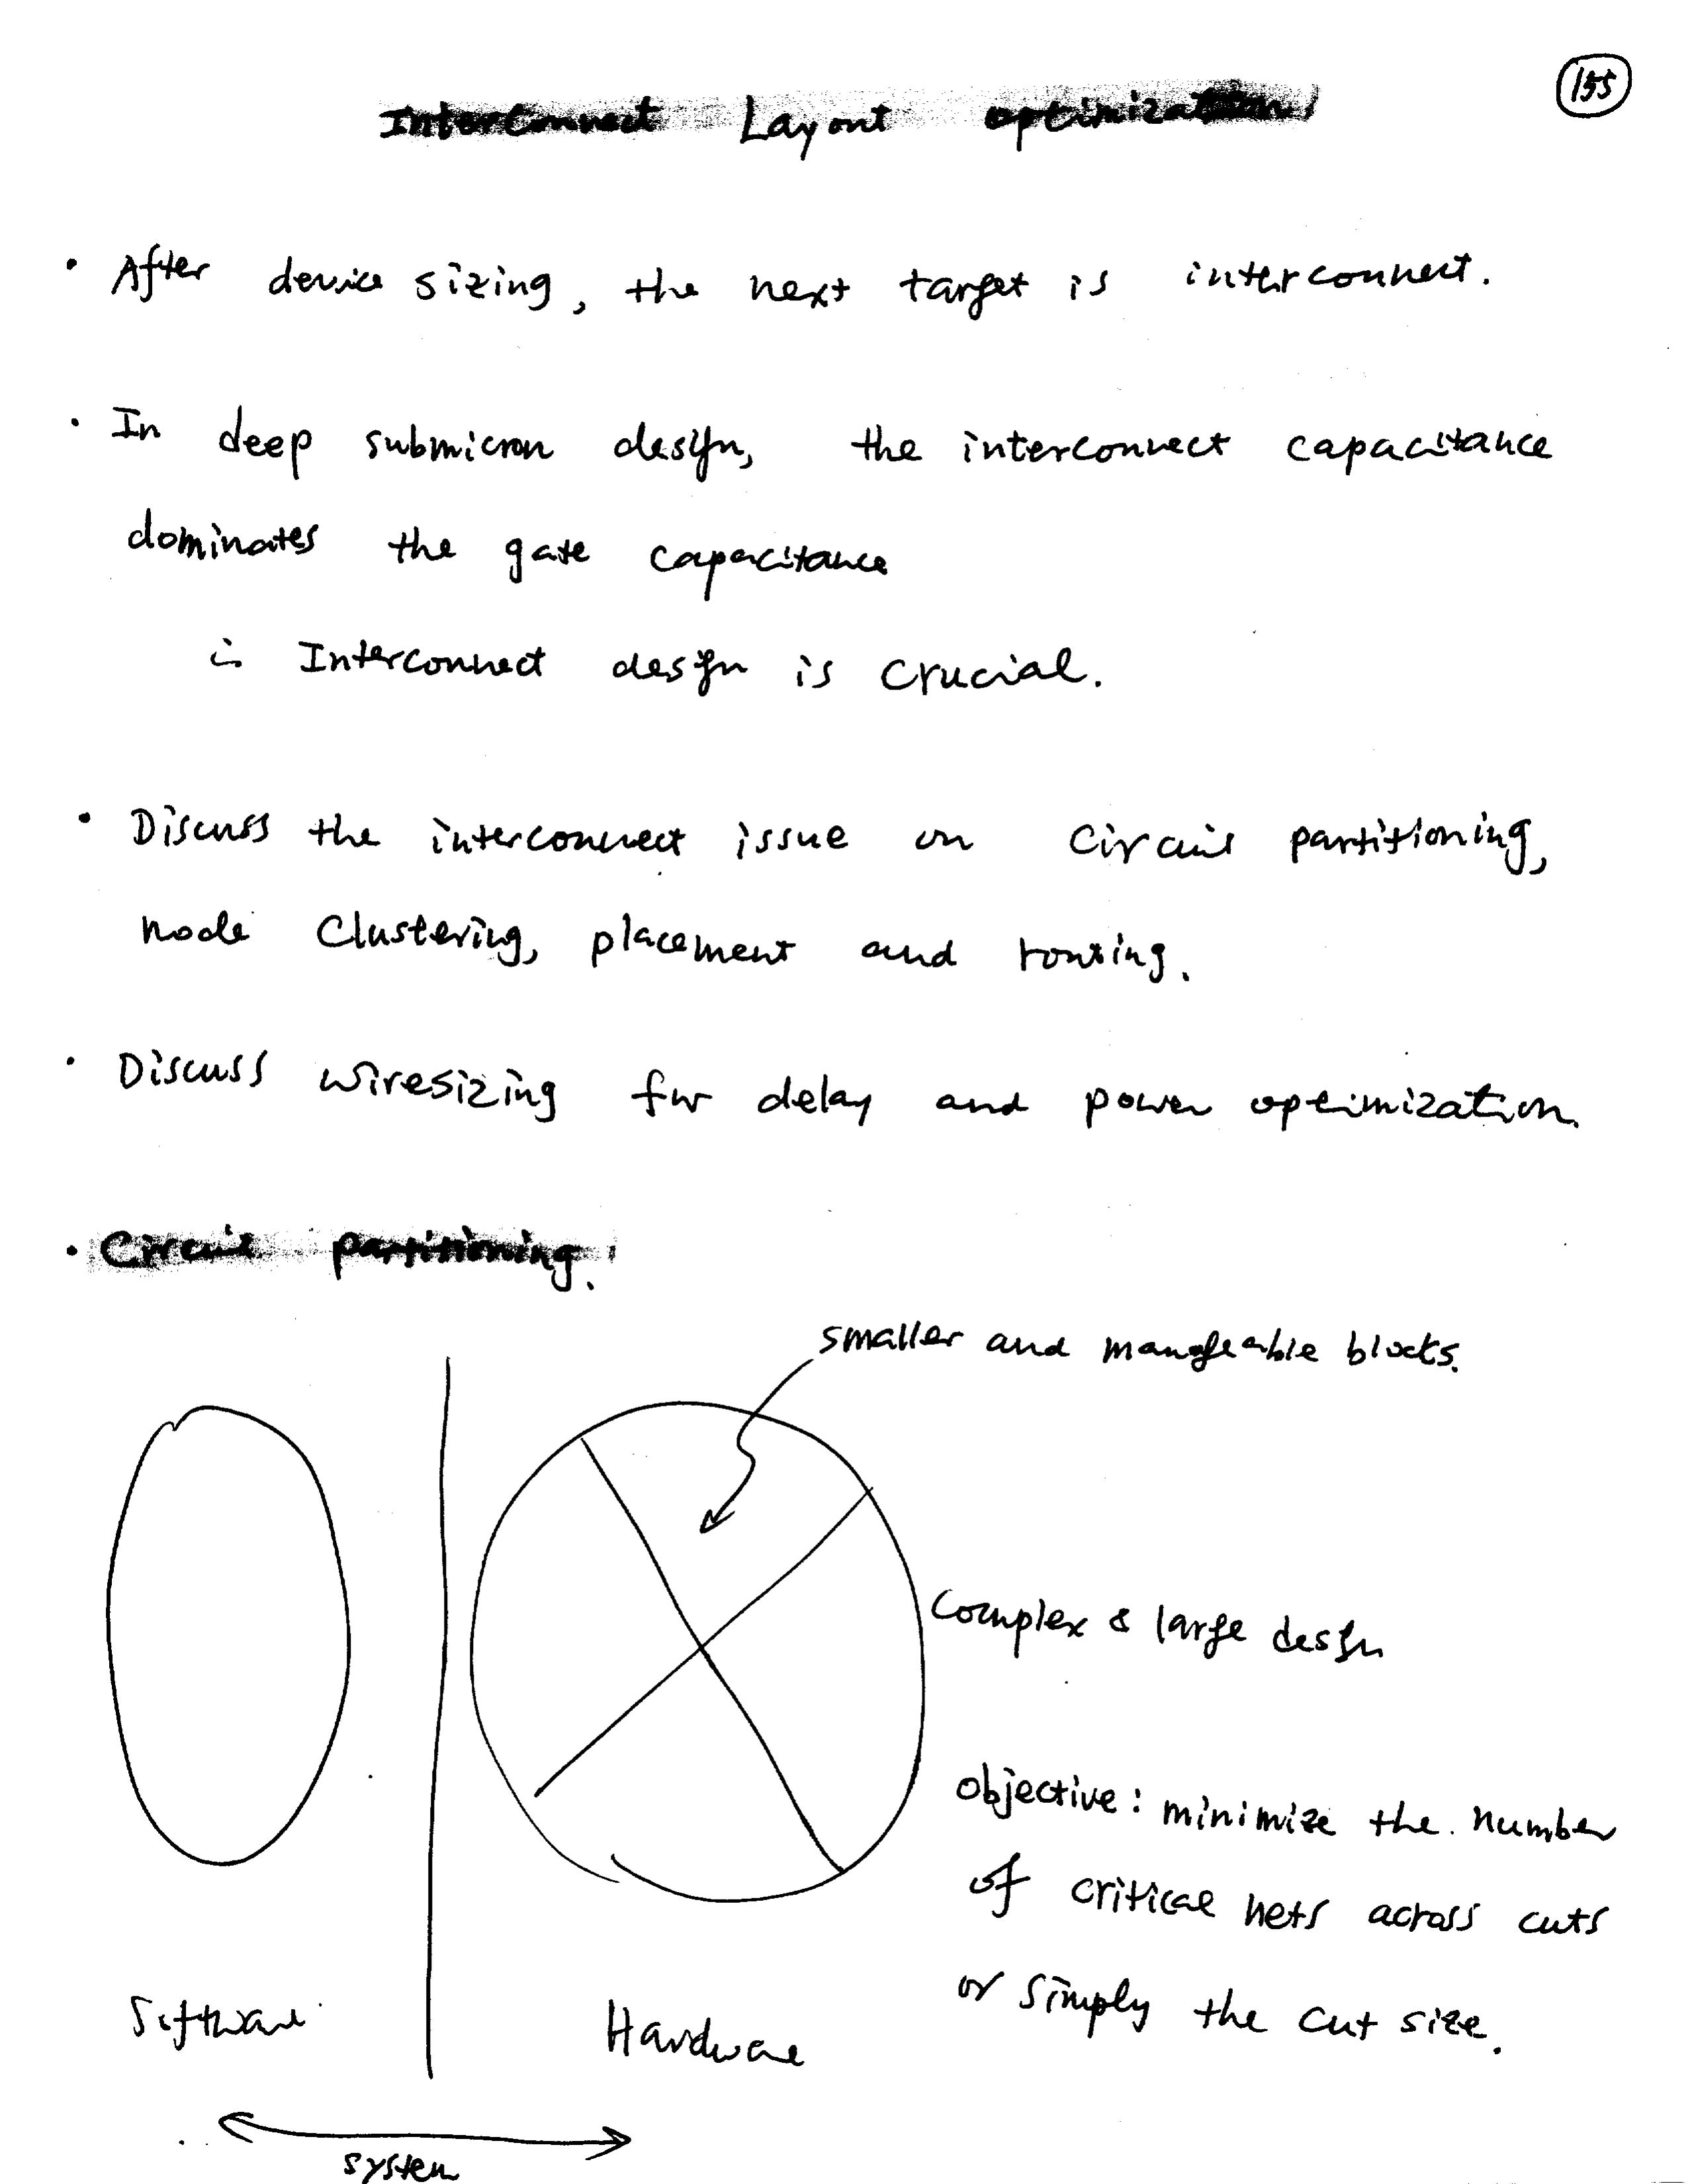 155
Interconnect Layout optimization
• After device sizing, the next target is interconnect.
• In deep submicron design, the interconnect capacitance
dominates the gate capacitance
∴ Interconnect design is crucial.
• Discuss the interconnect issue on Circuit partitioning,
node Clustering, placement and routing.
• Discuss wiresizing for delay and power optimization.
• Circuit partitioning.
smaller and manageable blocks.
Complex & large design
Objective: minimize the number
of critical nets across cuts
or simply the cut size.
Software
Hardware
system